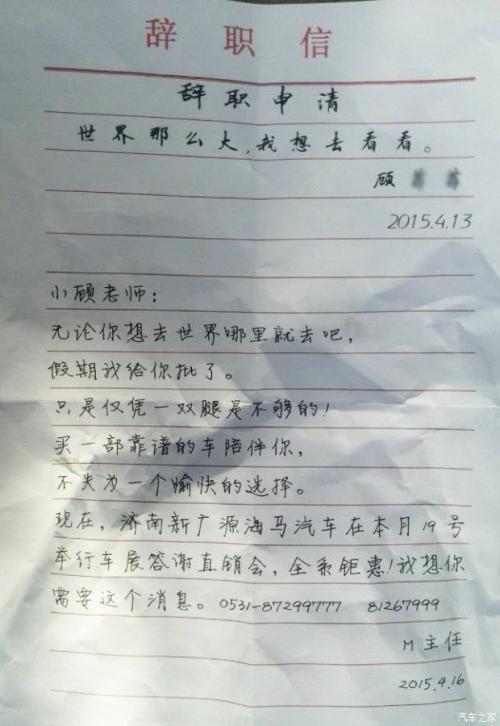 辞职信
辞职申请
世界那么大,我想去看看。
顾
2015.4.13
小顾老师:
无论你想去世界哪里就去吧,
假期我给你批了。
只是仅凭一双腿是不够的!
买一部靠谱的车陪伴你,
不失为一个愉快的选择。
现在,济南新广源海马汽车在本月19号
举行车展答谢直销会,全系钜惠!我想你
需要这个消息。0531-87299777 81267999
M主任
2015.4.16
汽车之家